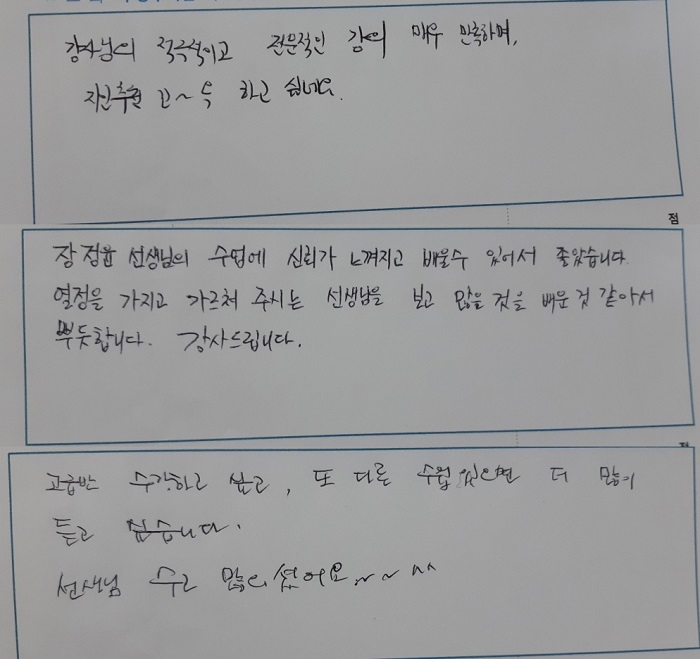 강사님의 적극적이고 전문적인 강의 매우 만족하며,
고~득 하고 싶네요.
점
장정윤 선생님의 수업에 신뢰가 느껴지고 배울수 있어서 좋았습니다
열정을 가지고 가르쳐 주시는 선생님을 보고 많을 것을 배운 것 같아서
뿌듯합니다. 감사드립니다.
고급반 수강하고 싶고, 또 다른 수업 있으면 더 많이
듣고 싶습니다.
선생님 수고 많으셨어요~~^^